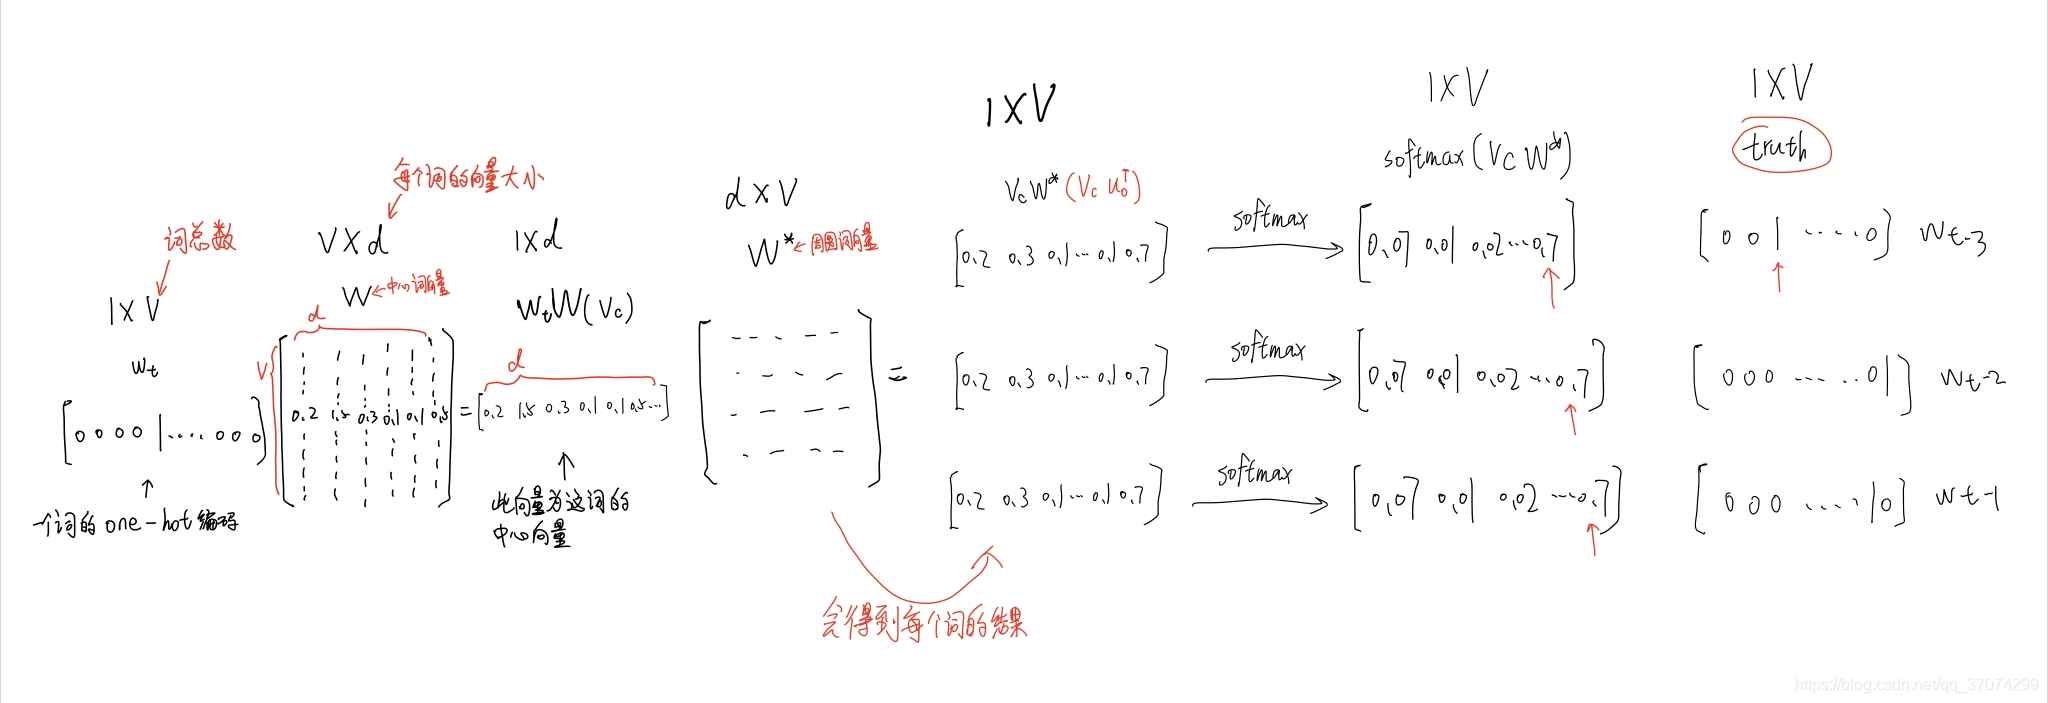 词总数
1XV
wt
[0 0 0 0 1 ..... 0 0 0]
一个词的one-hot编码
每个词的向量大小
VXd
W ←中心词向量
d
V
0.2 1.5 0.3 0.1 0.1 0.5
=
1xd
wtW(Vc)
d
[0.2 1.5 0.3 0.1 0.1 0.5...]
此向量为这词的
中心向量
dXV
W* ←周围词向量
=
1XV
VcW* (Vc u₀ᵀ)
[0.2 0.3 0.1 ... 0.1 0.7]
[0.2 0.3 0.1 ... 0.1 0.7]
[0.2 0.3 0.1 ... 0.1 0.7]
会得到每个词的结果
softmax
softmax
softmax
1XV
softmax(Vc W*)
[0.07 0.01 0.02 ... 0.7]
[0.07 0.01 0.02 ... 0.7]
[0.07 0.01 0.02 ... 0.7]
1XV
truth
[0 0 1 ..... 0] wt-3
[0 0 0 ...... 0 1] wt-2
[0 0 0 ..... 1 0] wt-1
https://blog.csdn.net/qq_37074299